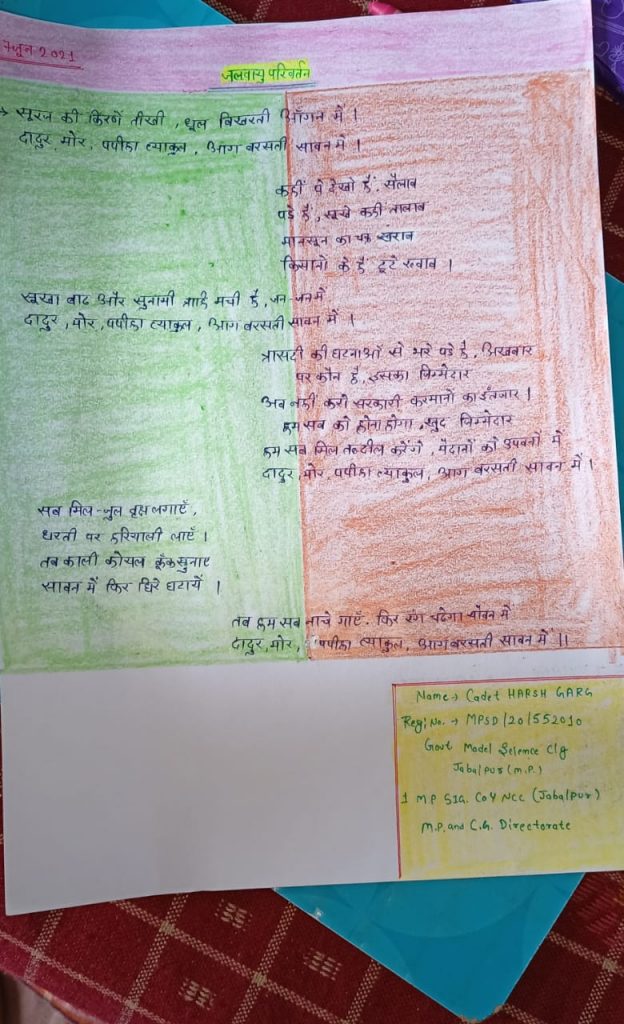 7 जून 2021
जलवायु परिवर्तन
→ सूरज की किरणें तीखी , धूल बिखरती आँगन में ।
दादुर, मोर, पपीहा व्याकुल, आग बरसती सावन में ।
कहीं पे देखो हैं, सैलाब
पड़े हैं, सूखे कहीं तालाब
मानसून का चक्र खराब
किसानों के हैं टूटे ख्वाब ।
सूखा बाढ़ और सुनामी त्राहि मची है, जन-जन में
दादुर, मोर, पपीहा व्याकुल, आग बरसती सावन में ।
त्रासदी की घटनाओं से भरे पड़े है, अखबार
पर कौन है, इसका जिम्मेदार
अब नहीं करो सरकारी फरमानों का इंतजार ।
हम सब को होना होगा, खुद जिम्मेदार
हम सब मिल तब्दील करेंगे, मैदानों को उपवनों में
दादुर, मोर, पपीहा व्याकुल, आग बरसती सावन में ।
सब मिल-जुल वृक्ष लगाएँ,
धरती पर हरियाली लाएँ ।
तब काली कोयल कूँक सुनाए
सावन में फिर घिरे घटायें ।
तब हम सब नाचे गाएँ. फिर रंग चढेगा यौवन में
दादुर, मोर, पपीहा व्याकुल, आग बरसती सावन में ।।
Name → Cadet HARSH GARG
Regi No. → MPSD/20/552010
Govt Model Science Clg
Jabalpur (M.P.)
1 MP SIG. COY NCC (Jabalpur)
M.P. and C.G. Directorate